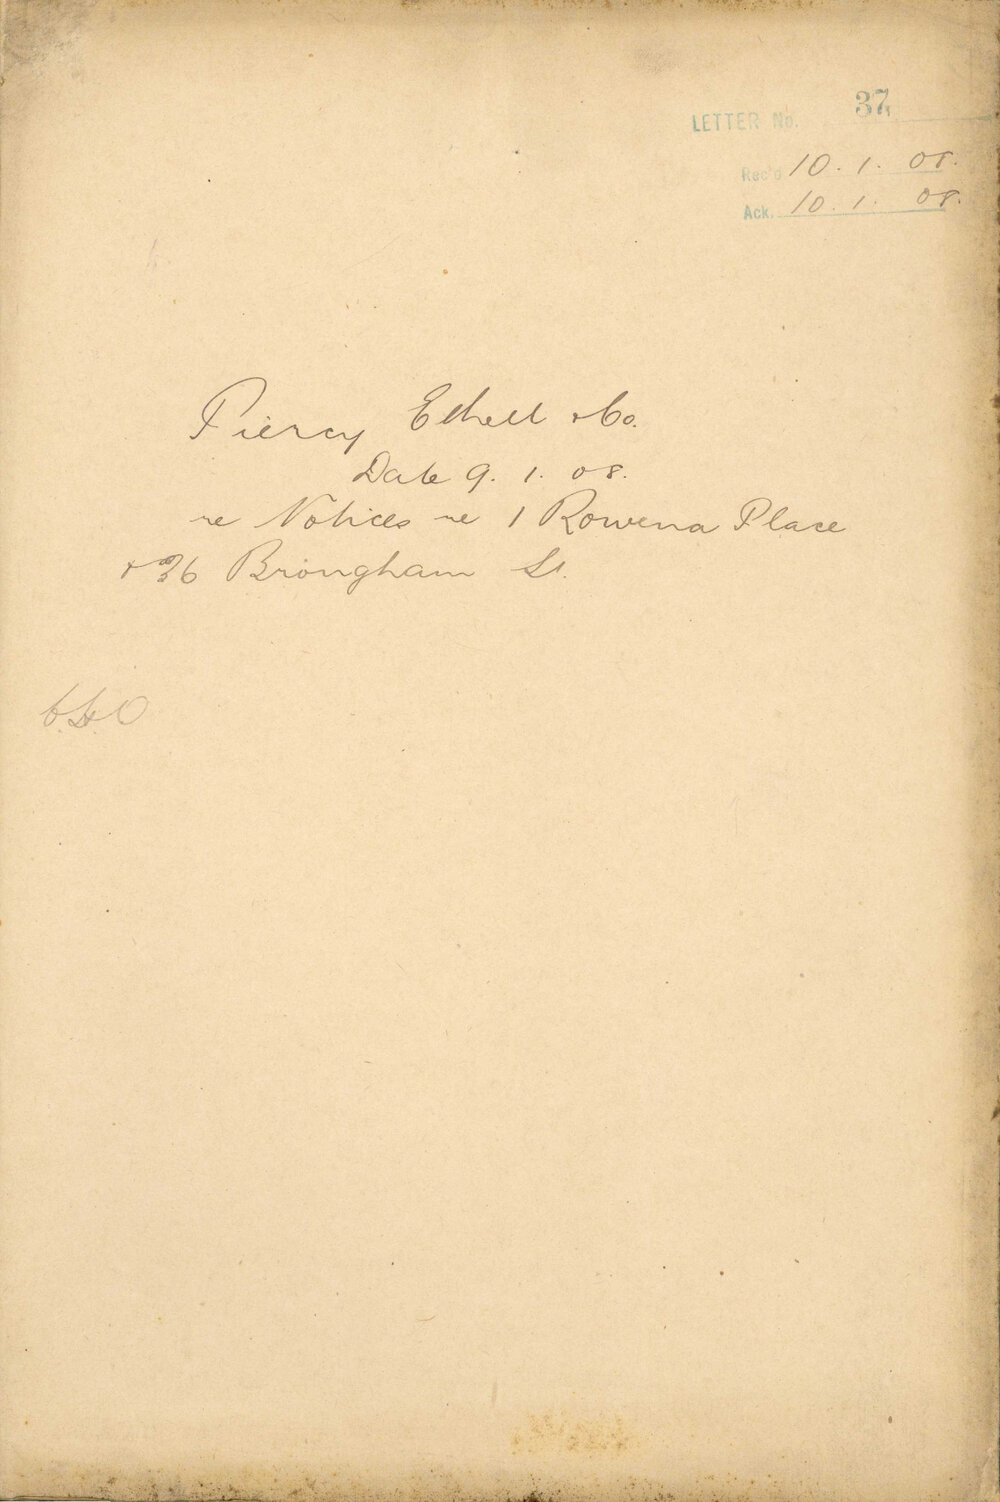 LETTER No. 37
Rec'd 10. 1. 08.
Ack. 10. 1. 08.
Piercy Ethell & Co.
Date 9. 1. 08.
re Notices re 1 Rowena Place
& 36 Brougham St.